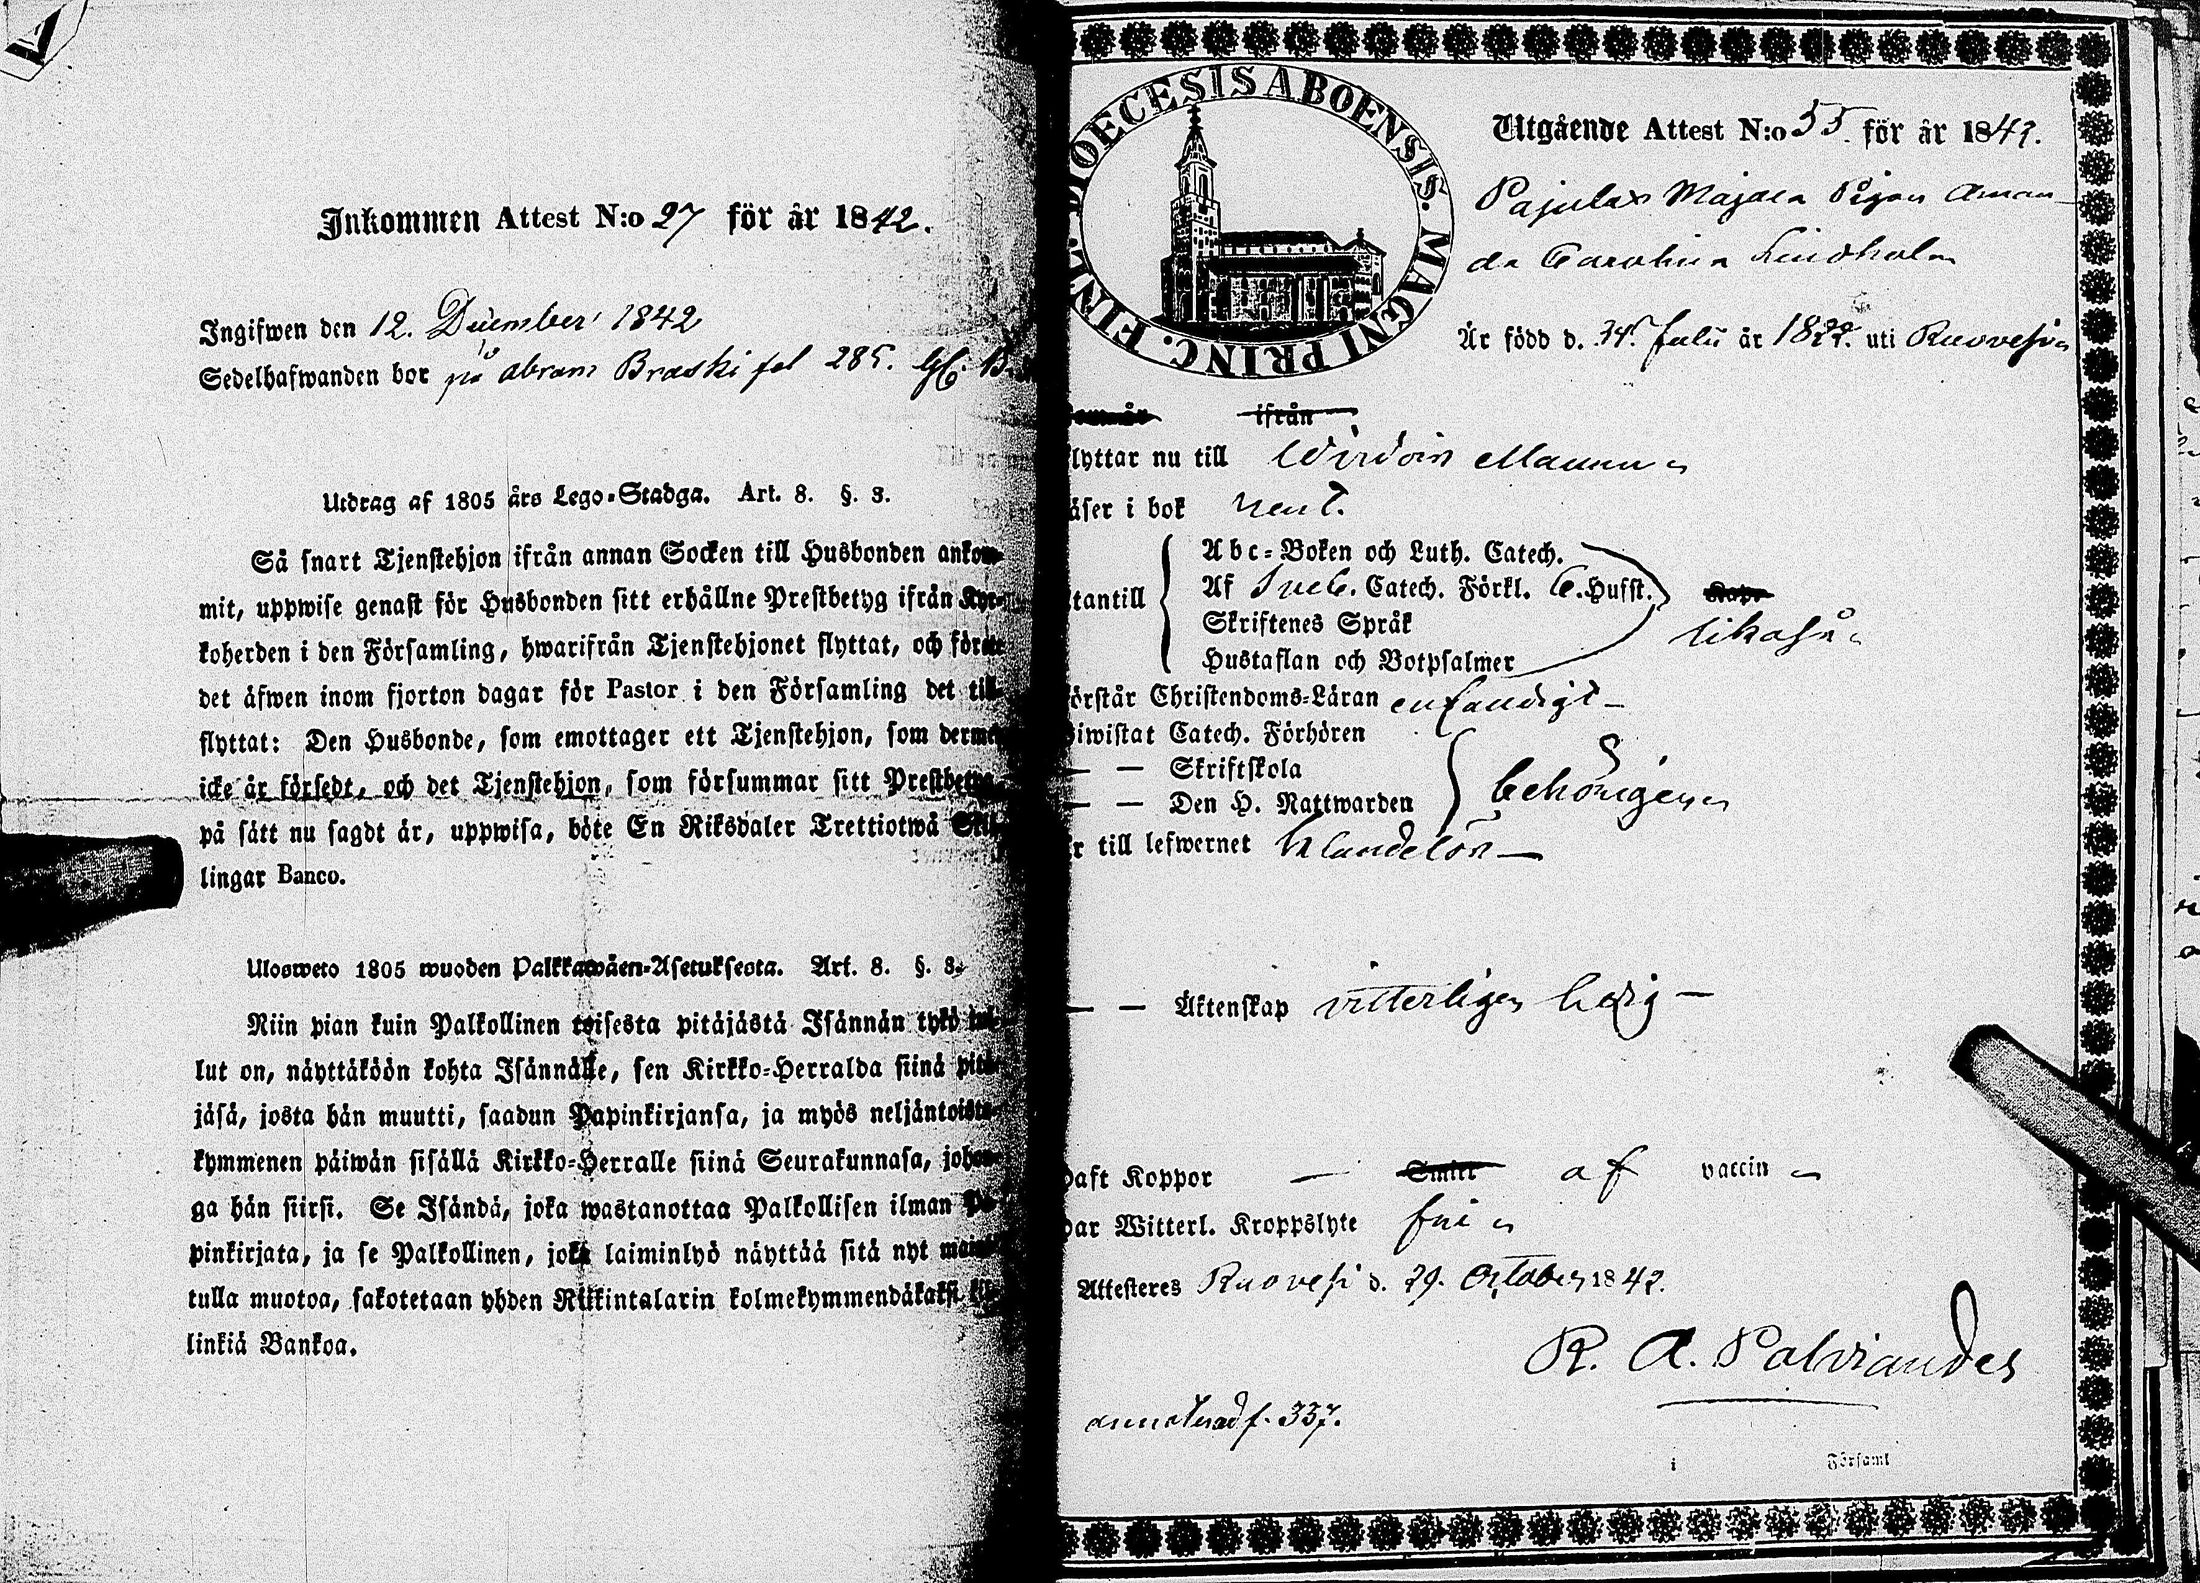 Inkommen Attest N:o 27 för år 1842.
Ingifwen den 12. December 1842
Sedelhafwanden bor på Abram Braski fol 285.
Utdrag af 1805 års Lego-Stadga. Art. 8. §. 3.
Så snart Tjenstehjon ifrån annan Socken till Husbonden ankom-
mit, uppwise genast för Husbonden sitt erhållne Prestbetyg ifrån Kyr-
koherden i den Församling, hwarifrån Tjenstehjonet flyttat, och förete
det äfwen inom fjorton dagar för Pastor i den Församling det till-
flyttat: Den Husbonde, som emottager ett Tjenstehjon, som dermed
icke är försedt, och det Tjenstehjon, som försummar sitt Prestbetyg,
på sätt nu sagdt är, uppwisa, böte En Riksdaler Trettiotwå Skil-
lingar Banco.
Ulosweto 1805 wuoden Palkkawäen-Asetuksesta. Art. 8. §. 3.
Niin pian kuin Palkollinen toisesta pitäjästä Isännän tykö tul-
lut on, näyttäköön kohta Isännälle, sen Kirkko-Herralda siinä pitä-
jäsä, josta hän muutti, saadun Papinkirjansa, ja myös neljäntoista-
kymmenen päiwän sisällä Kirkko-Herralle siinä Seurakunnasa, johon-
ga hän siirsi. Se Isändä, joka wastanottaa Palkollisen ilman Pa-
pinkirjata, ja se Palkollinen, joka laiminlyö näyttää sitä nyt mainit-
tulla muotoa, sakotetaan yhden Riikintalarin kolmekymmendäkaksi kil-
linkiä Bankoa.
DIOECESIS ABOENSIS. MAGNI PRINC. FINL.
Utgående Attest N:o 55. för år 1842.
Pajulax Majaea Pigan Aman-
da Carolina Lindholm
Är född d. Juli år 1822. uti Ruovesi
ifrån
flyttar nu till Wirdois
läser i bok rent.
utantill
Abc-Boken och Luth. Catech.
Af Sveb. Catech. Förkl. C. Husst.
Skriftenes Språk
Hustaflan och Botpsalmer
likaså
förstår Christendoms-Läran enfaldigt
Biwistat Catech. Förhören
— — Skriftskola
— — Den H. Nattwarden
behörigen
är till lefwernet oklanderlig
— — Äktenskap vitterligen ledig
haft Koppor — af vaccin
har Witterl. Kroppslyte fri
Attesteres Ruovesi d. 29. October 1842.
R. A. Palviandes
annoterad f. 337.
i Församl